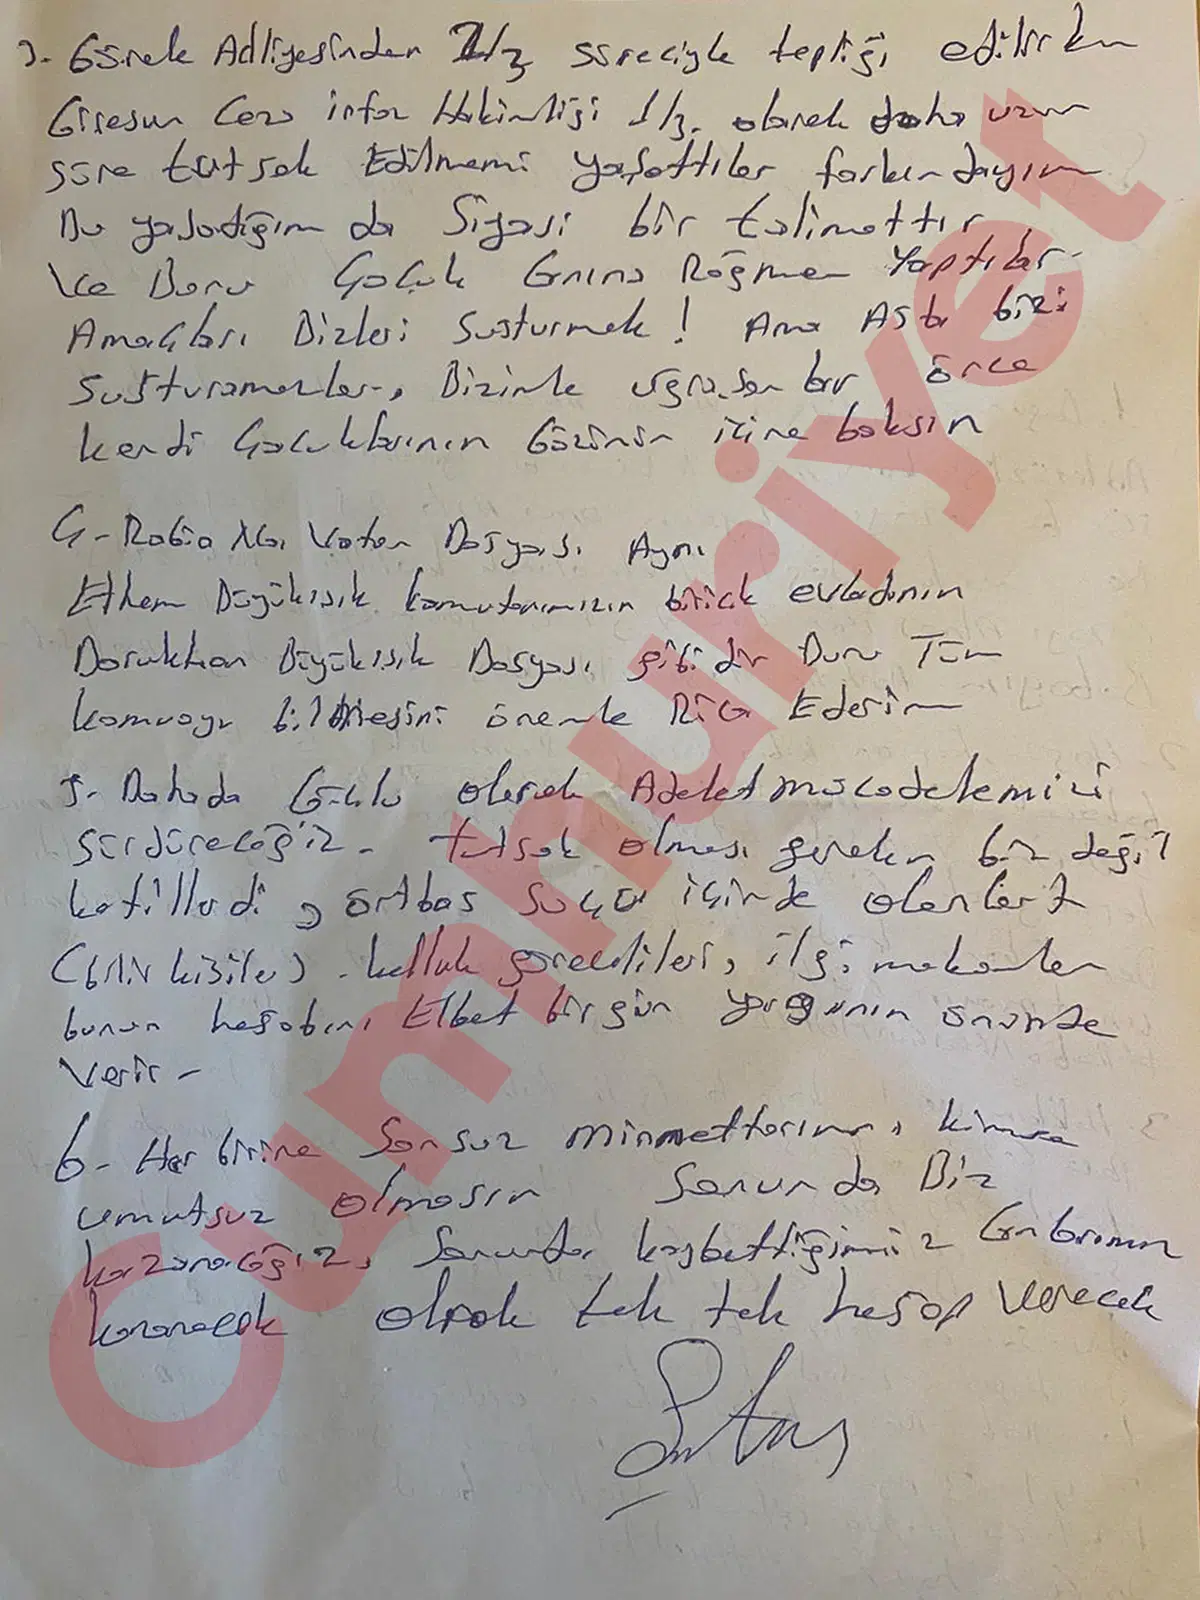 3- Görele Adliyesinden 2/3 süreciyle tepliği edilirken
Giresun Ceza infaz Hakimliği 1/3. olarak daha uzun
süre tutsak Edilmemi yaşattılar farkındayım
Bu yaşadığım da Siyasi bir talimattır
Ve Bunu Çocuk Anına Rağmen Yaptılar-
Amaçları Bizleri Susturmak! Ama Asla bizi
susturamazlar, Bizimle uğraşanlar önce
kendi Çocuklarının Gözünün içine baksın
4- Rabia Naz Vatan Dosyası Aynı
Ethem Büyükışık komutanımızın biricik evladının
Dorukhan Büyükışık Dosyası gibidir Bunu Tüm
kamuoyu bilmesini önemle Rica Ederim
5- Dahada Güçlü olarak Adalet mücadelemizi
sürdüreceğiz- tutsak olması gereken biz değil
katillerdi, örtbas suçu içinde olanlar
kişiler) - kolluk görevlileri, ilgi makamlar
bunun hesabını Elbet bir gün yargının önünde
verir-
6- Her birine Sonsuz minnettarım, kimse
umutsuz olmasın Sonunda Biz
kazanacağız, Sonunda kaybettiğimiz
kazanacak olarak tek tek hesap verecek